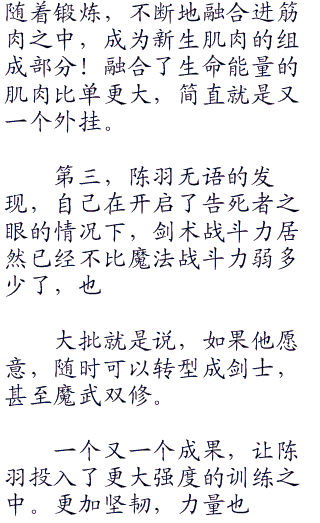 随着锻炼，不断地融合进筋
肉之中，成为新生肌肉的组
成部分！融合了生命能量的
肌肉比单更大，简直就是又
一个外挂。
第三，陈羽无语的发
现，自己在开启了告死者之
眼的情况下，剑术战斗力居
然已经不比魔法战斗力弱多
少了，也
大批就是说，如果他愿
意，随时可以转型成剑士，
甚至魔武双修。
一个又一个成果，让陈
羽投入了更大强度的训练之
中。更加坚韧，力量也